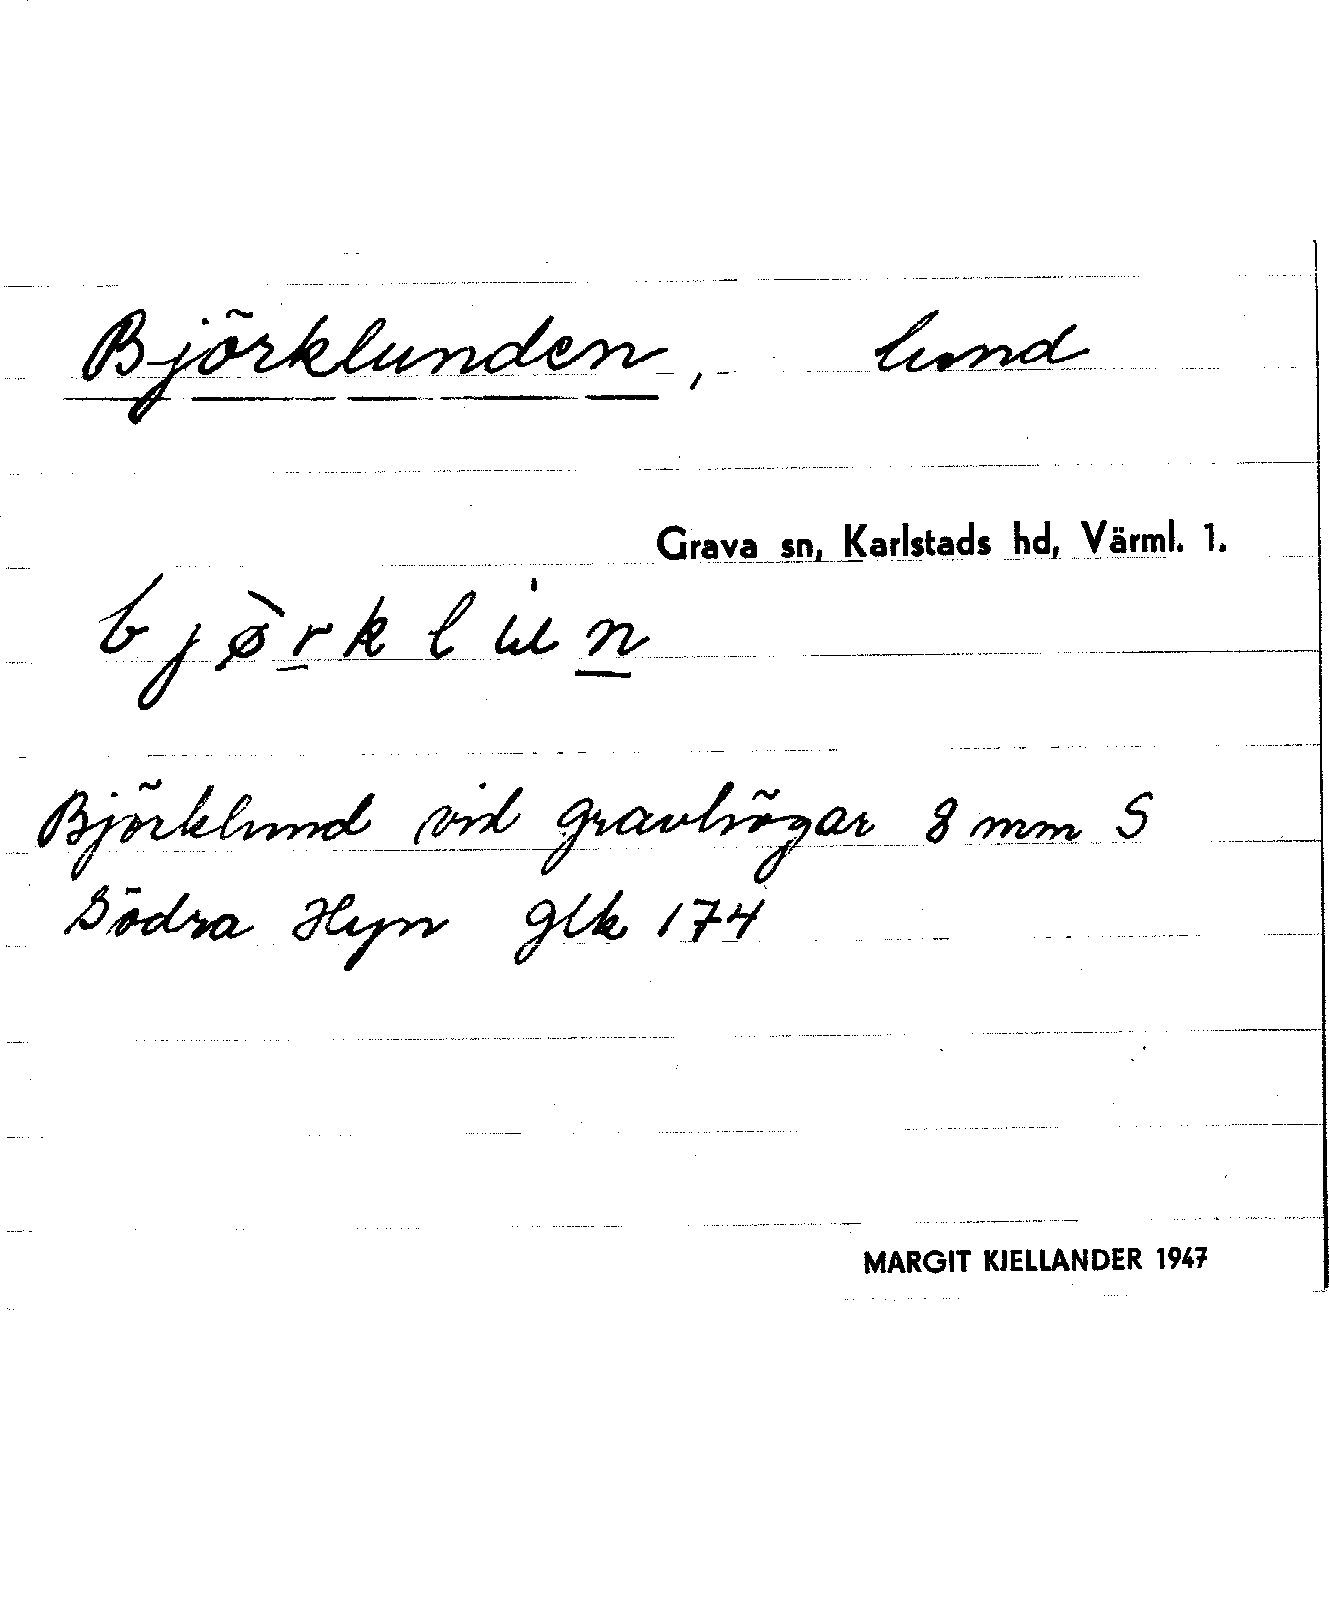 Björklunden, lund
Grava sn, Karlstads hd, Värml. 1.
bjø̀rklu̇n
Björklund vid gravhögar 8 mm S
Södra Hyn glk 174
MARGIT KJELLANDER 1947